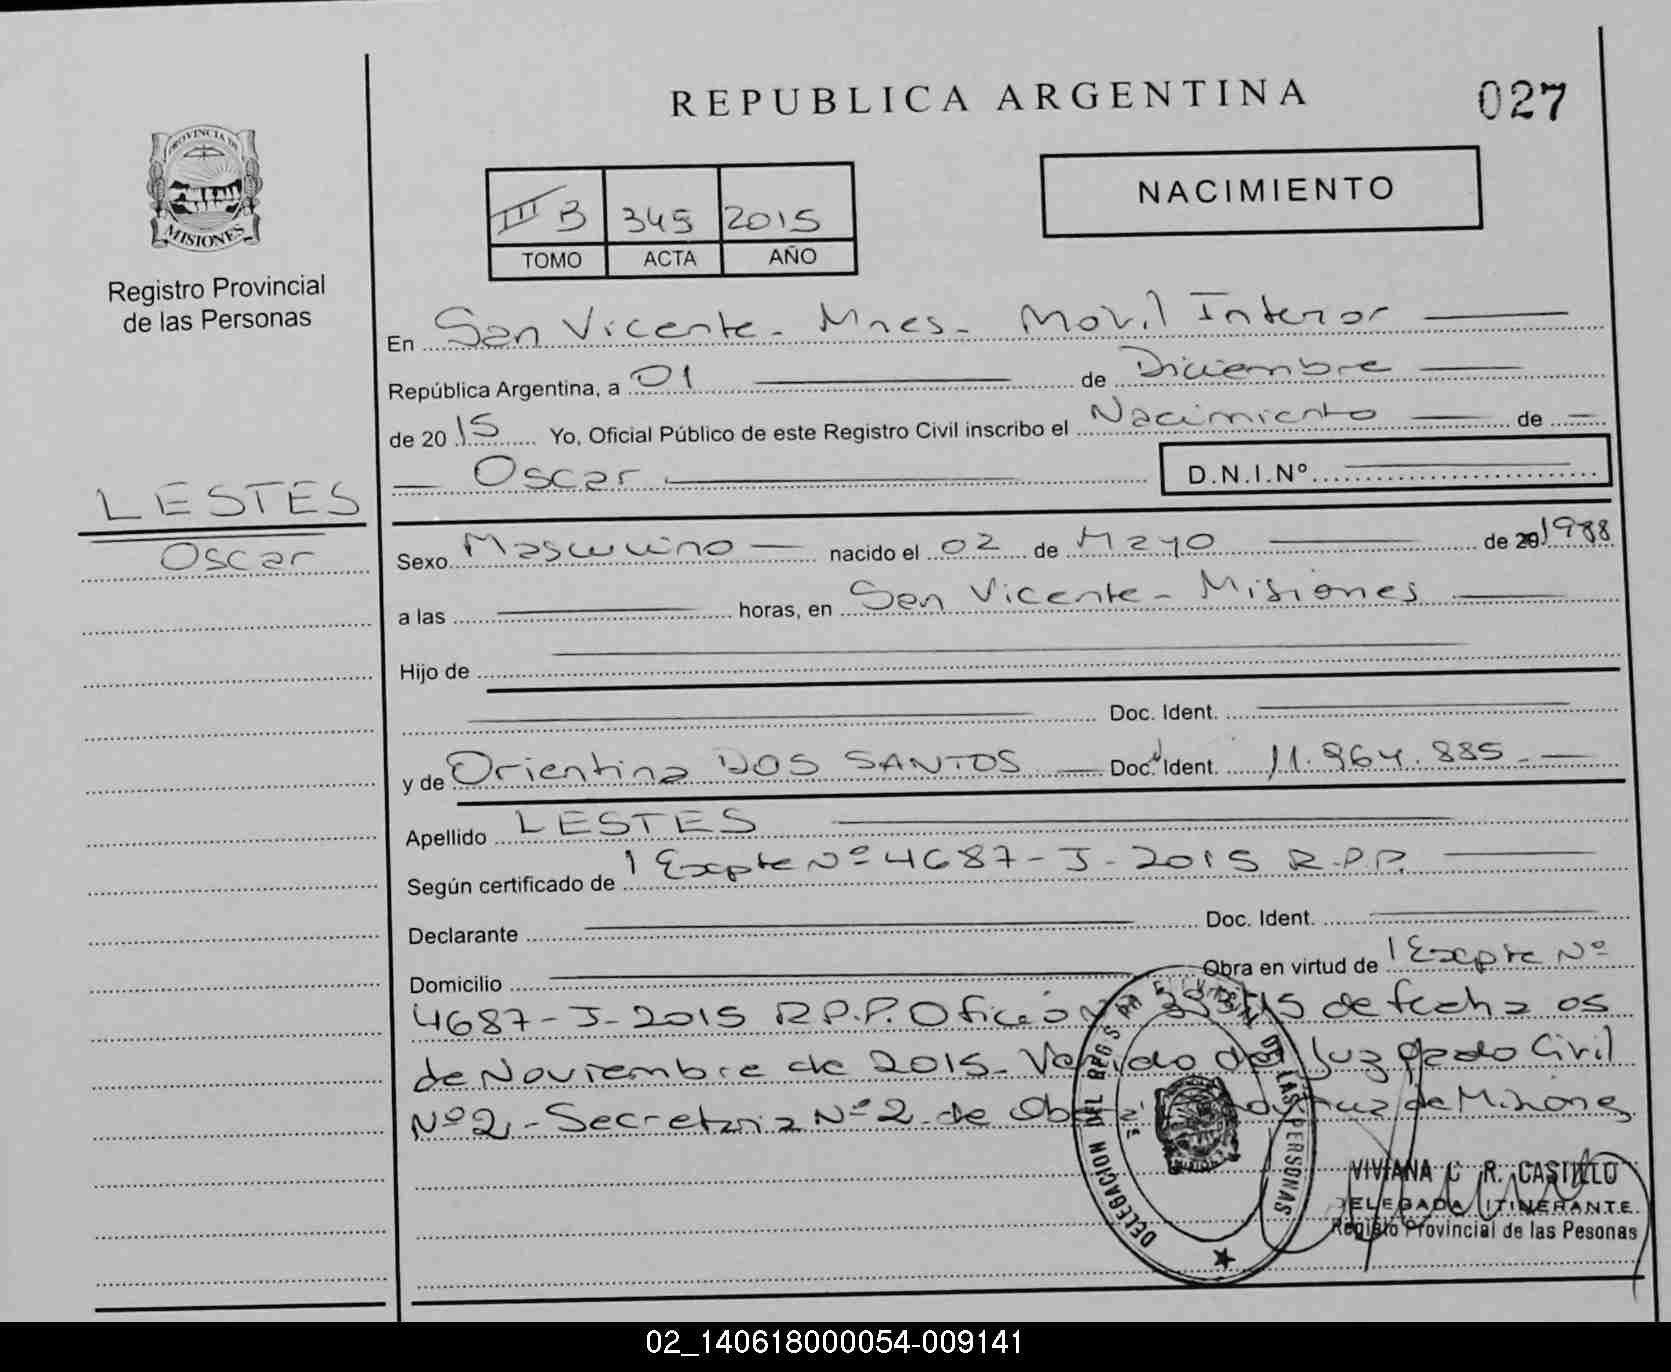 REPUBLICA ARGENTINA
027
PROVINCIA DE
MISIONES
Registro Provincial
de las Personas
III B 345 2015
TOMO ACTA AÑO
NACIMIENTO
En San Vicente - Mnes - Movil Interior
República Argentina, a 01 de Diciembre
de 2015 Yo, Oficial Público de este Registro Civil inscribo el Nacimiento de
Oscar D.N.I.Nº
LESTES
Oscar
Sexo Masculino nacido el 02 de Mayo de 20 1988
a las horas, en San Vicente - Misiones
Hijo de
Doc. Ident.
y de Orientina DOS SANTOS Doc. Ident. 11.964.885.-
Apellido LESTES
Según certificado de 1 Expte Nº 4687-J-2015 R.P.P.
Declarante Doc. Ident.
Domicilio Obra en virtud de 1 Expte Nº
4687-J-2015 R.P.P. Oficio de fecha 05
de Noviembre de 2015- Juzgado Civil
Nº2,- Secretaria Nº2 de Misiones
DELEGACION DEL DE LAS PERSONAS
VIVIANA C R. CASTILLO
DELEGADA ITINERANTE
Registo Provincial de las Pesonas
02_140618000054-009141